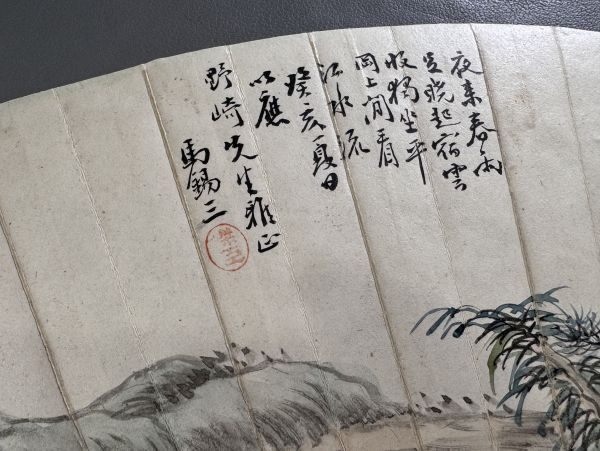 夜来春雨
足晓起宿雲
收獨坐平
岡上閒看
江水流
癸亥夏日
以應
野崎先生雅正
馬錫三